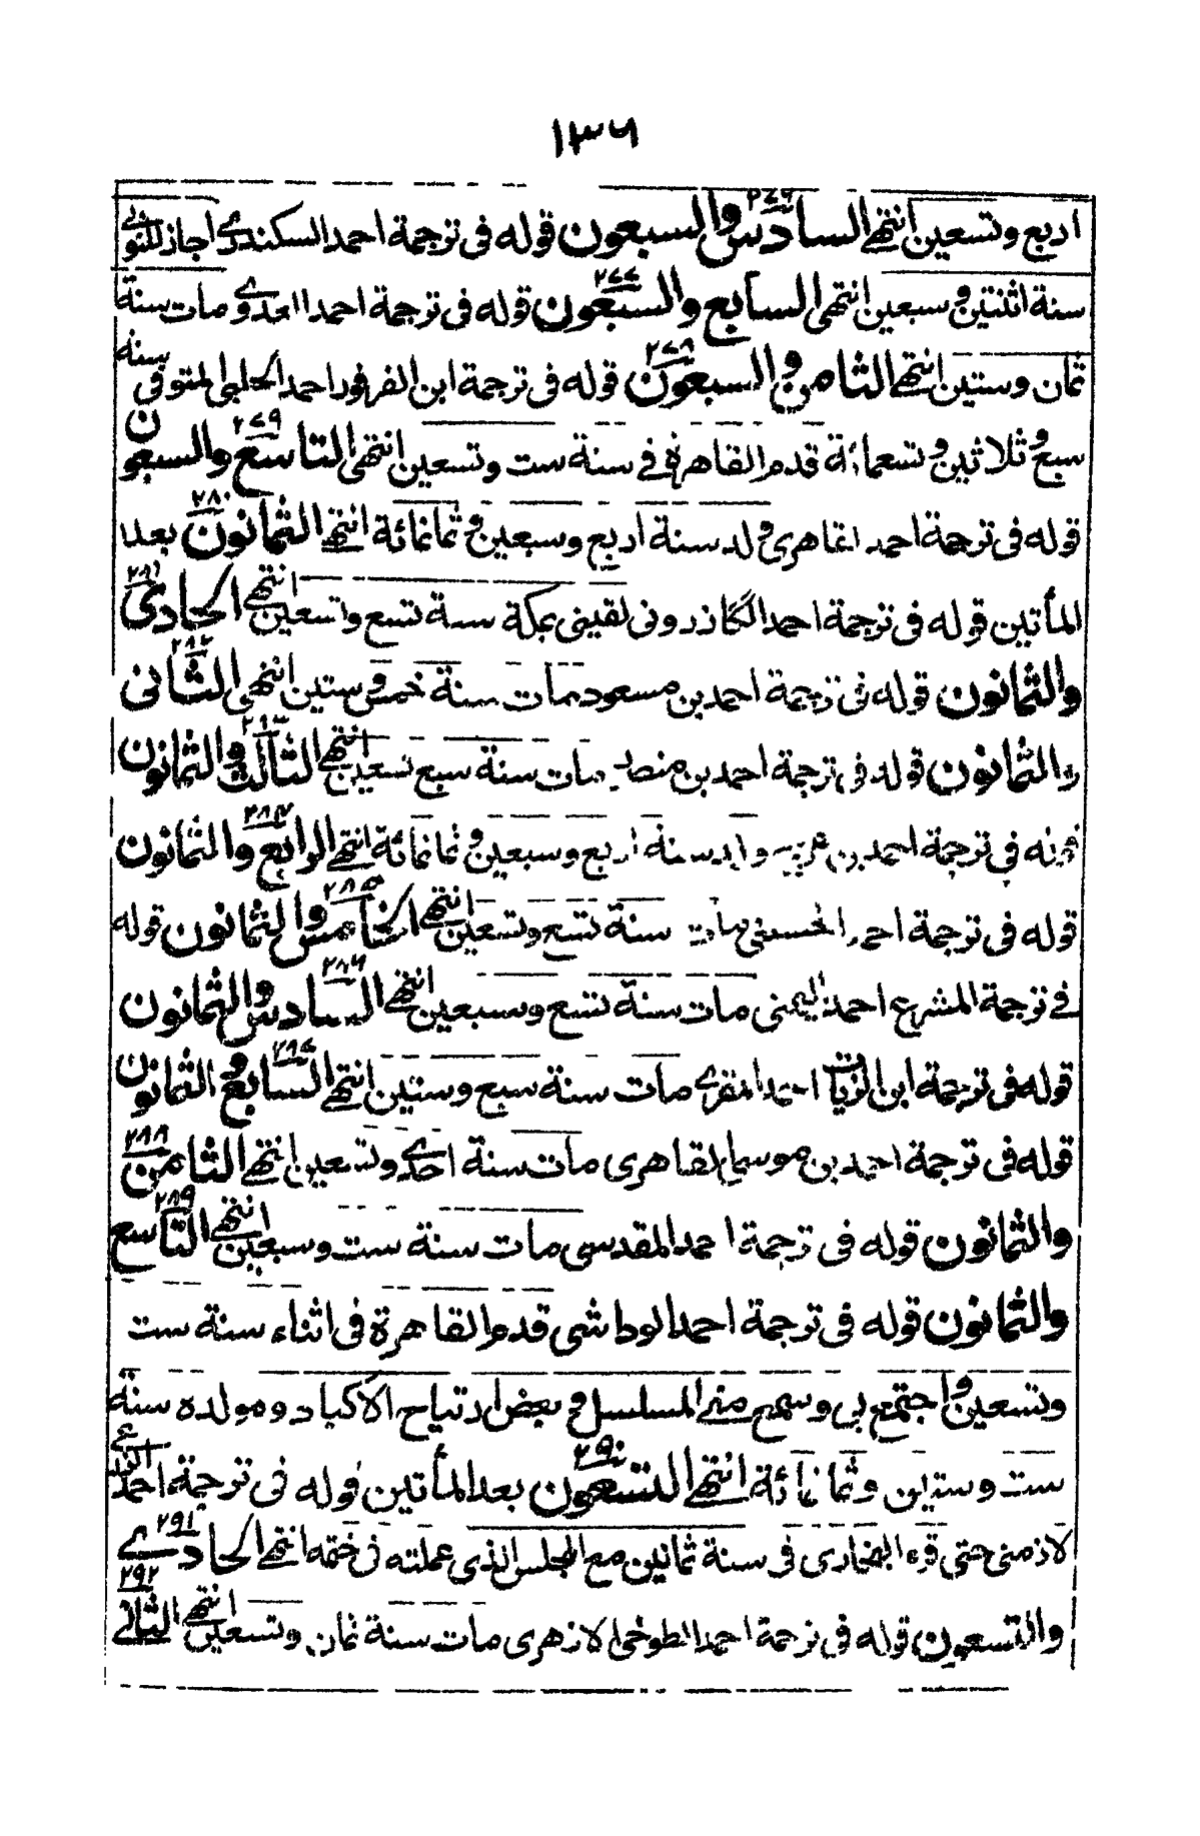 ١٣٦
اربع وتسعين انتهى السادس والسبعون قوله فى ترجمة احمد السكندرى اجاز للنوبى
٢٧٦
سنة اثنتين وسبعين انتهى السابع والسبعون قوله فى ترجمة احمد ومات سنة
٢٧٧
ثمان وستين انتهى الثامن والسبعون قوله فى ترجمة ابن الفرفور احمد الحلبى المتوفى سنة
٢٧٨
سبع وثلاثين وتسعمائة قدم القاهرة فى سنة ست وتسعين انتهى التاسع والسبعون
٢٧٩
قوله فى ترجمة احمد القاهرى ولد سنة اربع وسبعين وثمانمائة انتهى الثمانون بعد
٢٨٠
المأتين قوله فى ترجمة احمد الكاذرونى لقينى بمكة سنة تسع وتسعين انتهى الحادى
٢٨١
والثمانون قوله فى ترجمة احمد بن مسعود مات سنة خمس وستين انتهى الثانى
٢٨٢
والثمانون قوله فى ترجمة احمد بن مات سنة سبع تسعين انتهى الثالث والثمانون
٢٨٣
قوله فى ترجمة احمد بن ولد سنة اربع وسبعين وثمانمائة انتهى الرابع والثمانون
٢٨٤
قوله فى ترجمة احمد الحسينى مات سنة تسع وتسعين انتهى الخامس والثمانون قوله
٢٨٥
فى ترجمة المشرع احمد اليمنى مات سنة تسع وسبعين انتهى السادس والثمانون
٢٨٦
قوله فى ترجمة ابن الزيات احمد المقرى مات سنة سبع وستين انتهى السابع والثمانون
٢٨٧
قوله فى ترجمة احمد بن موسى القاهرى مات سنة احدى وتسعين انتهى الثامن
٢٨٨
والثمانون قوله فى ترجمة احمد المقدسى مات سنة ست وسبعين انتهى التاسع
٢٨٩
والثمانون قوله فى ترجمة احمد الوداشى قدم القاهرة فى اثناء سنة ست
وتسعين واجتمع بى وسمع منى المسلسل و بعض ارتياح الاكباد ومولده سنة
ست وستين وثمانمائة انتهى التسعون بعد المأتين قوله فى ترجمة احمد
٢٩٠
لازمنى حتى قرء البخارى فى سنة ثمانين مع المجلس الذى عملته فى ختمه انتهى الحادى
٢٩١
والتسعون قوله فى ترجمة احمد الطوخى الازهرى مات سنة ثمان وتسعين انتهى الثانى
٢٩٢